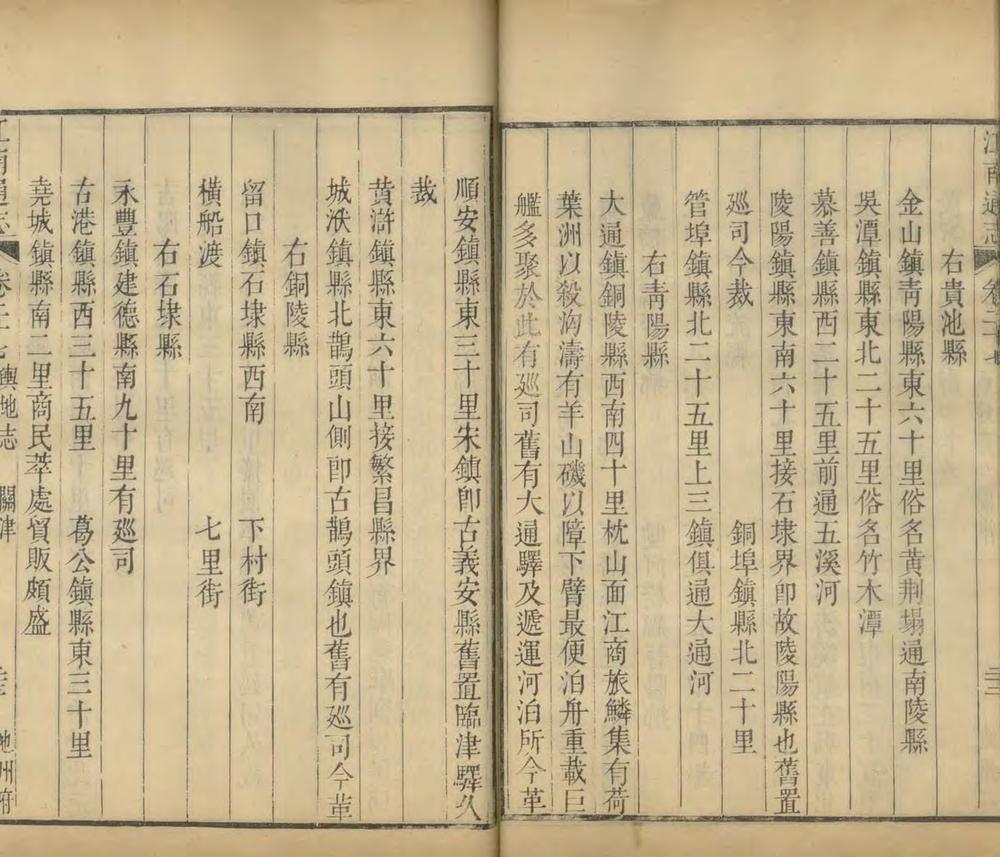 江南通志 卷二十七
右貴池縣
金山鎮青陽縣東六十里俗名黄荆塌通南陵縣
吳潭鎮縣東北二十五里俗名竹木潭
慕善鎮縣西二十五里前通五溪河
陵陽鎮縣東南六十里接石埭界卽故陵陽縣也舊置
廵司今裁 銅埠鎮縣北二十里
管埠鎮縣北二十五里上三鎮俱通大通河
右青陽縣
大通鎮銅陵縣西南四十里枕山面江商旅鱗集有荷
葉洲以殺洶濤有羊山磯以障下臂最便泊舟重載巨
艦多聚於此有廵司舊有大通驛及遞運河泊所今革
順安鎮縣東三十里宋鎮卽古義安縣舊置臨津驛久
裁
黄滸鎮縣東六十里接繁昌縣界
城洑鎮縣北鵲頭山側卽古鵲頭鎮也舊有廵司今革
右銅陵縣
留口鎮石埭縣西南 下村街
橫船渡 七里街
右石埭縣
永豐鎮建德縣南九十里有廵司
古港鎮縣西三十五里 葛公鎮縣東三十里
堯城鎮縣南二里商民萃處貿販頗盛
江南通志 卷二十七 輿地志 關津 池州府